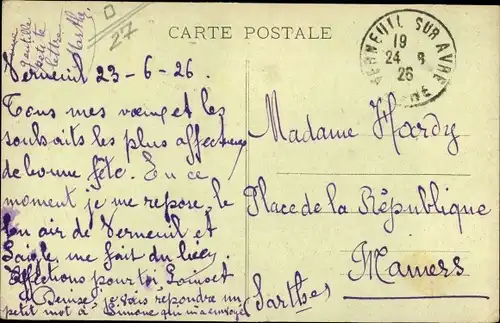 CARTE POSTALE
27
VERNEUIL SUR AVRE
19
24 - 6
26
EURE
gentille
petite
lettre
Marthe
Verneuil 23-6-26.
Tous mes vœux et les
souhaits les plus affectueux
de bonne fête. En ce
moment je me repose, le
bon air de Verneuil et
Laigle, me fait du bien,
Affections pour toi
Denise, je vais répondre un
petit mot à Simone qui m'a envoyé
Madame Hardy
Place de la République
Mamers
(Sarthe)